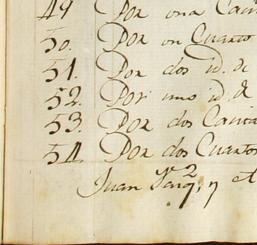 49 Por ona Cau
50. Por on Cuarto
51. Por dos id. de
52. Por uno id. de
53. Por dos Cau
54. Por dos Cuartos
Juan y el